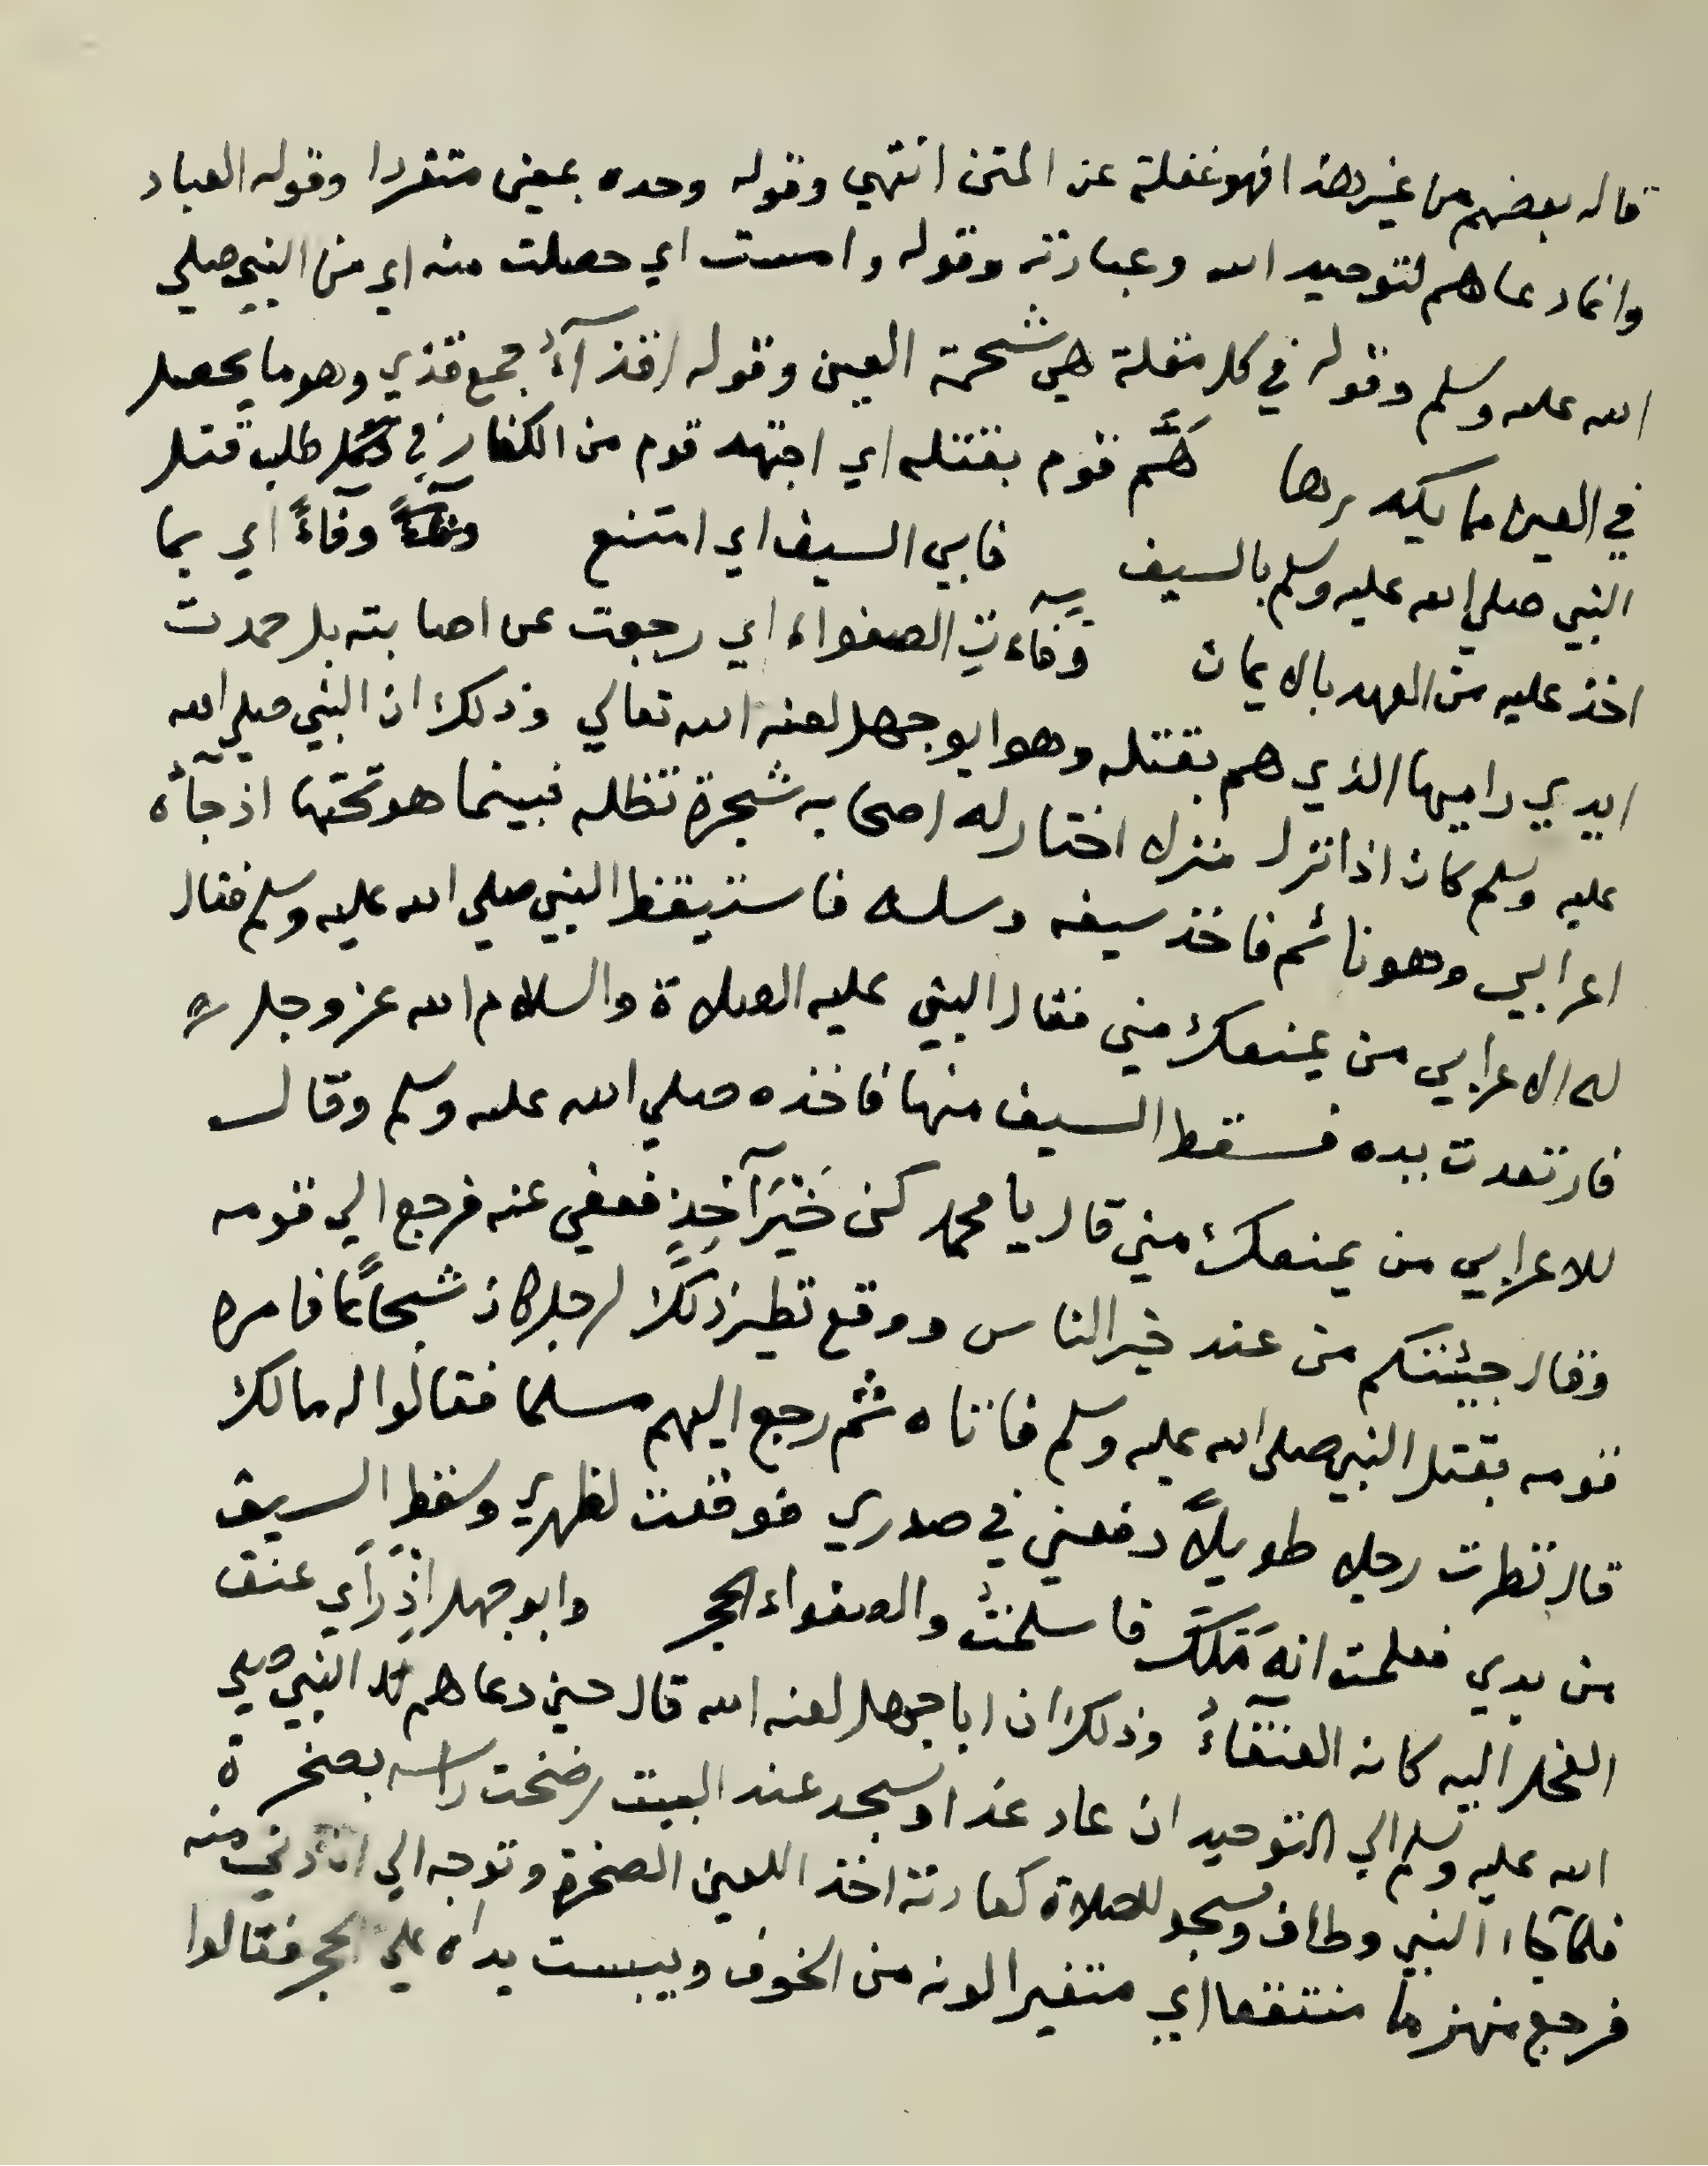 قاله بعضهم من غير هذا فهو غفلة عن المتن انتهي وقوله وحده بمعنى منفردا وقوله العباد
وانما دعاهم لتوحيد الله وعبادته وقوله وامست اي حصلت منه اي من النبي صلي
الله عليه وسلم وقوله في كل مقلة هي شحمة العين وقوله اقذآءُ جمع قذي وهو ما يحصل
في العين مما يكدرها هَمَّ قوم بقتله اي اجتهد قوم من الكفار في طلب قتل
النبي صلي الله عليه وسلم بالسيف فابي السيف اي امتنع وفآءً اي بما
اخذ عليه من العهد بالايمان وفآءت الصفواء اي رجعت عن اصابته بل جمدت
ايدي راميها الذي هم بقتله وهو ابو جهل لعنه الله تعالي وذلك ان النبي صلي الله
عليه وسلم كان اذا نزل منزلا اختار له اصحابه شجرة تظله فبينما هو تحتها اذ جآءه
اعرابي وهو نائم فاخذ سيفه وسله فاستيقظ النبي صلي الله عليه وسلم فقال
له الاعرابي من يمنعك مني فقال النبي عليه الصلاة والسلام الله عز وجل
فارتعدت يده فسقط السيف منها فاخذه صلي الله عليه وسلم وقال
للاعرابي من يمنعك مني قال يا محمد كن خَيْرَ آخِذٍ فعفي عنه فرجع الي قومه
وقال جيئتكم من عند خير الناس ووقع نظير ذلك لرجل كان شجاعًا فامره
قومه بقتل النبي صلي الله عليه وسلم فاتاه ثم رجع اليهم مسلما فقالوا له مالك
قال نظرت رجلا طويلاً دفعني في صدري فوقعت لظهري وسقط السيف
من يدي فعلمت انه مَلَكٌ فاسلمتُ والصفواء الحجر وابو جهل اذ رَأي عنق
الفحل اليه كانه العنقآءُ وذلك ان ابا جهل لعنه الله قال حين دعاهم النبي صلي
الله عليه وسلم الي التوحيد ان عاد غدا وسجد عند البيت رضخت راسه بصخرة
فلما جآء النبي وطاف وسجد للصلاة كعادته اخذ اللعين الصخرة وتوجه الي ان دني منه
فرجع منهزما منتقعا اي متغيرا لونه من الخوف ويبست يداه علي الحجر فقالوا